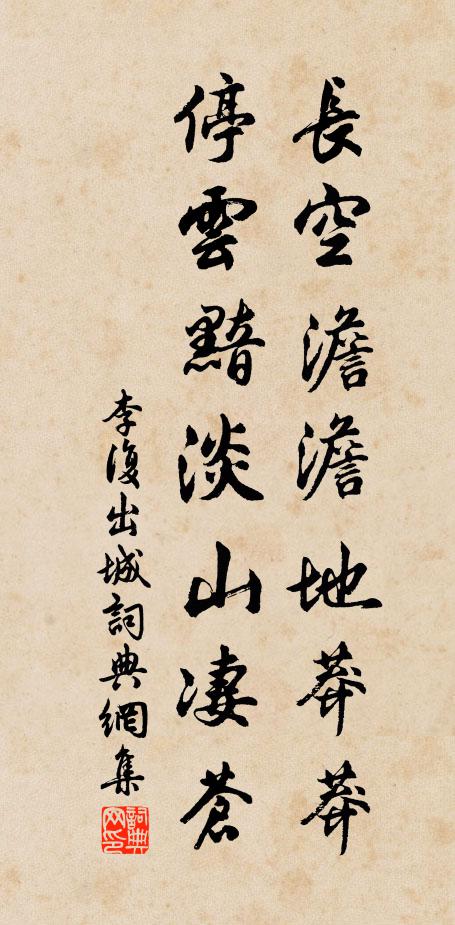 長空澹澹地莽莽
停雲黯淡山凄蒼
李復出城詞典網集
詞典網印